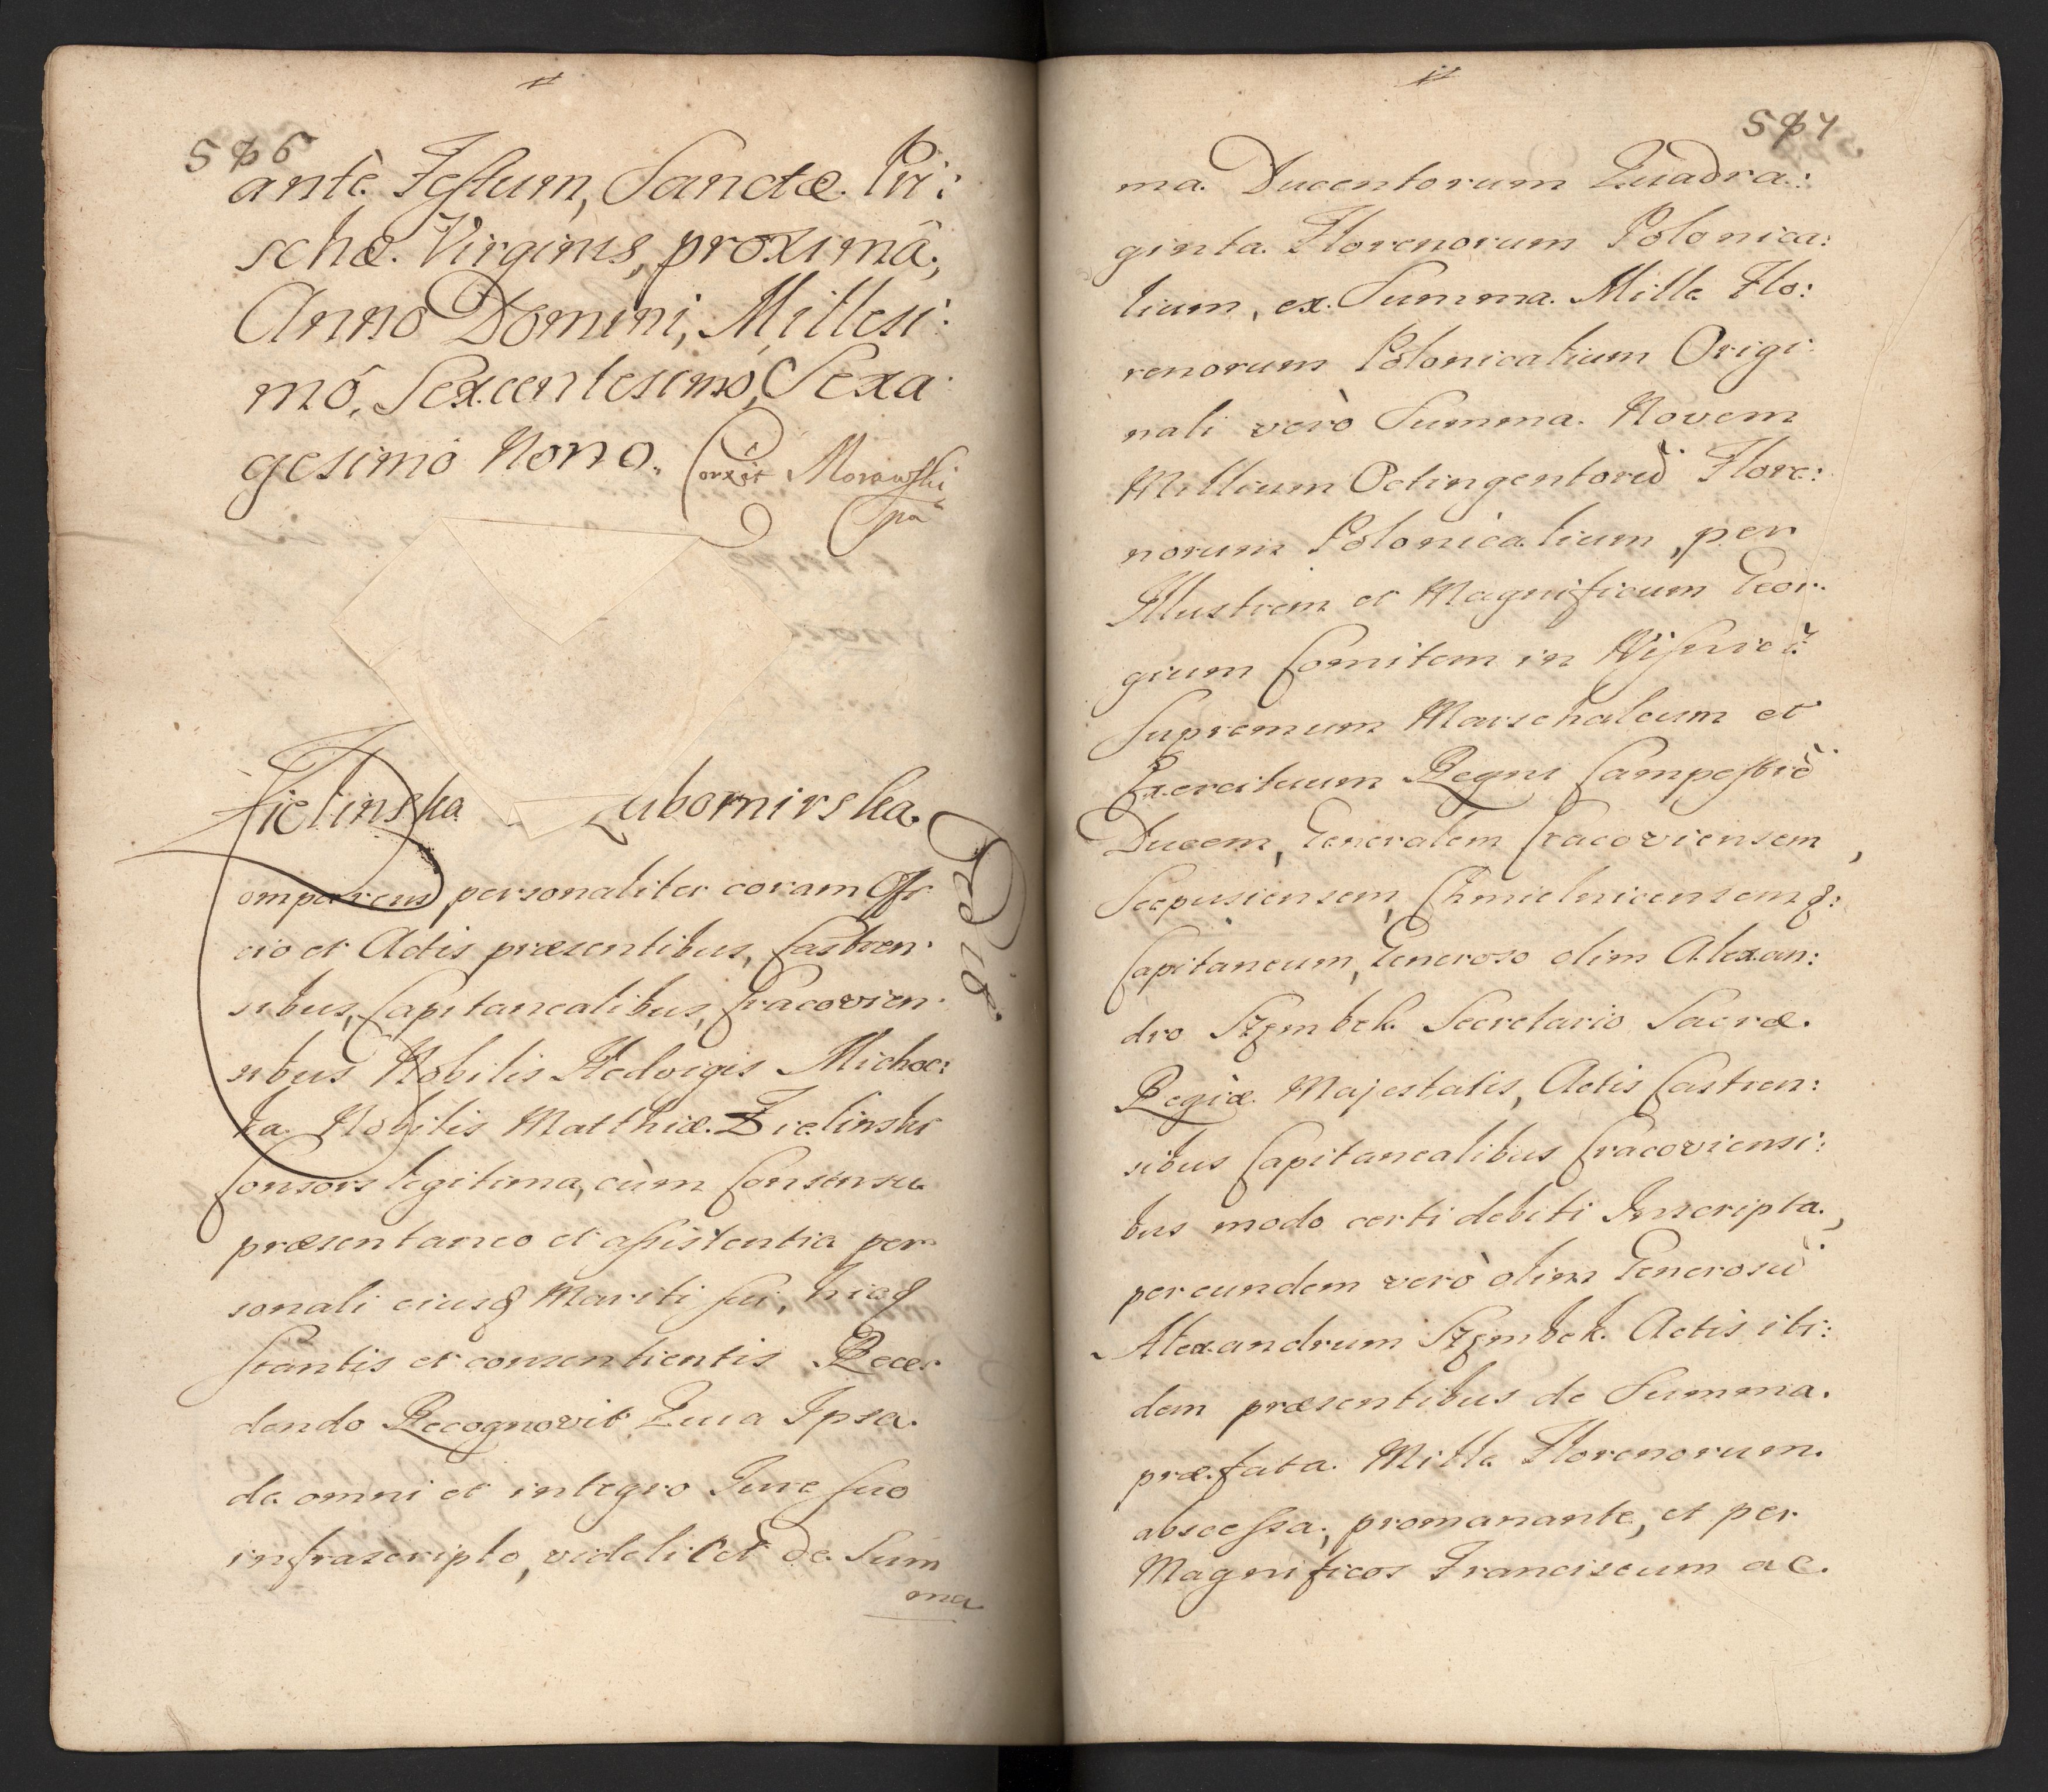 506
antè Festum, Sanctæ Pri:
schæ Virginis, proximâ,
Anno Domini, Millesi:
mô, Sexcentesimô, Sexa:
gesimô Nonô.
Morawski
Zielinska Lubomirska
omparens personaliter coram Offi
cio et Actis præsentibus, Castren:
sibus, Capitanealibus, Cracovien:
sibus Nobilis Hedvigis Michoc:
ka Nobilis Matthiæ Zielinski
Consors legitima, cùm Consensu
præsentaneo et assistentia per
sonali eiusq Mariti sui, hicq
stantis et consentientis Rece
dendo Recognovit Quia Ipsa
de omni et integro Jure suo
infrascripto, videlicet de Sum
ma
507
ma Ducentorum Quadra:
ginta Florenorum Polonica:
lium, ex Summa Mille Flo:
renorum Polonicalium Origi:
nali verò Summa Novem
Millium Octingentorũ Flore:
norum Polonicalium, per
Illustrem et Magnificum Geor:
gium Comitem in Wisnicz
Supremum Marschalcum et
Exercituum Regni Campestrẽ
Ducem, Generalem Cracoviensem,
Scepusiensem, Chmielnicensemq:
Capitaneum, Generoso olim Alexan:
dro Szembek Secretario Sacræ
Regiæ Majestatis, Actis Castren:
sibus Capitanealibus Cracoviensi:
bus modo certi debiti Inscripta,
per eundem verò olim Generosũ
Alexandrum Szembek Actis ibi:
dem præsentibus de Summa
præfata Mille Florenorum
abscessa, promanante, et per
Magnificos Franciscum ac